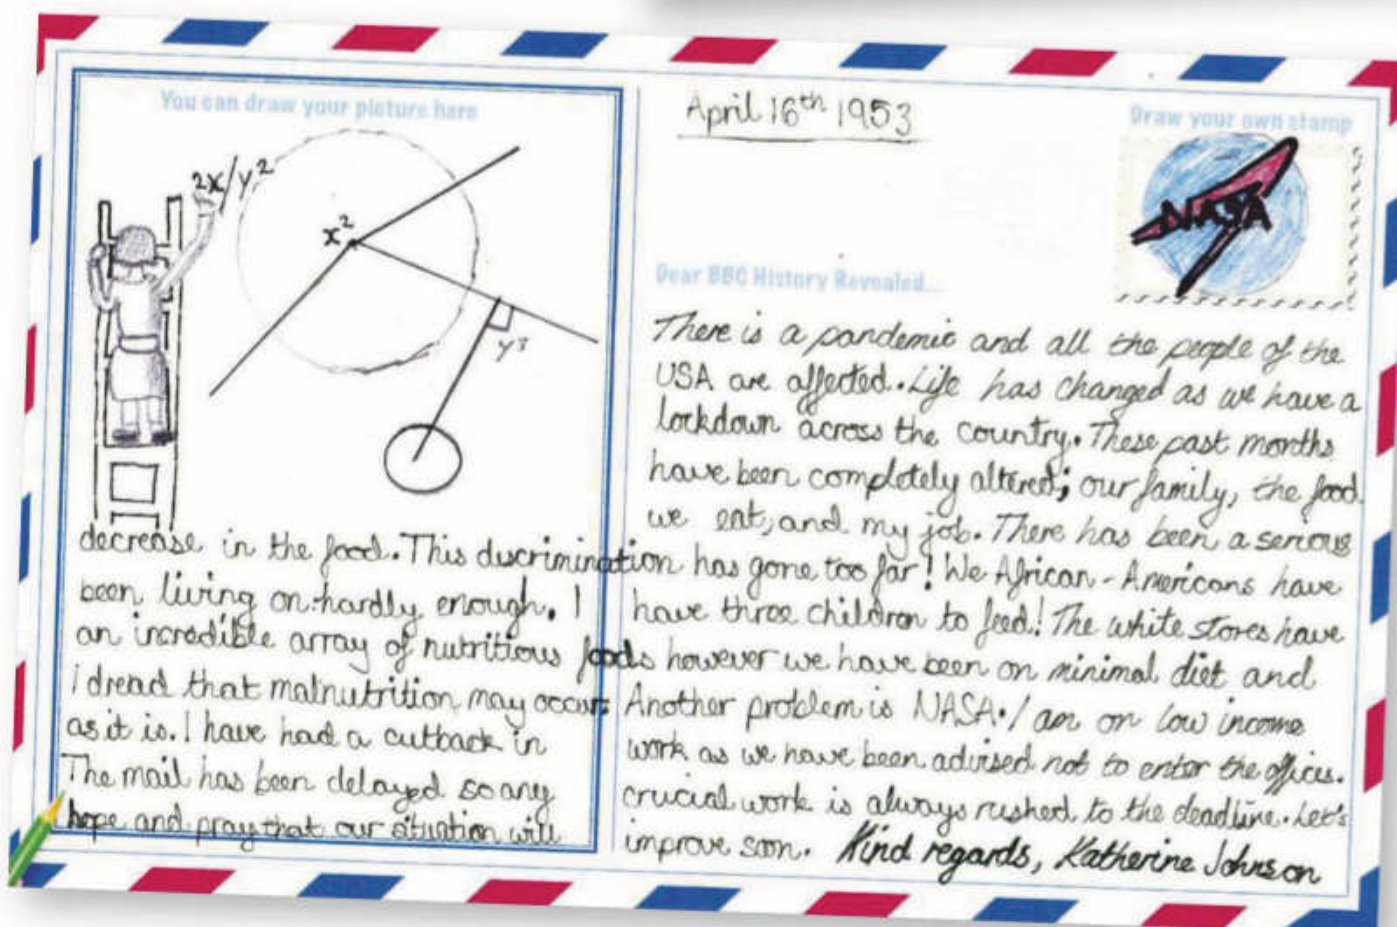 You can draw your picture here
2x/y²
x²
y³
April 16th 1953
Draw your own stamp
NASA
Dear BBC History Revealed...
There is a pandemic and all the people of the
USA are affected. Life has changed as we have a
lockdown across the country. These past months
have been completely altered; our family, the food
we eat, and my job. There has been a serious
decrease in the food. This discrimination has gone too far! We African-Americans have
been living on hardly enough. I have three children to feed! The white stores have
an incredible array of nutritious foods however we have been on minimal diet and
i dread that malnutrition may occur. Another problem is NASA. I am on low income
as it is. I have had a cutback in work as we have been advised not to enter the offices.
The mail has been delayed so any crucial work is always rushed to the deadline. Let's
hope and pray that our situation will improve soon. Kind regards, Katherine Johnson